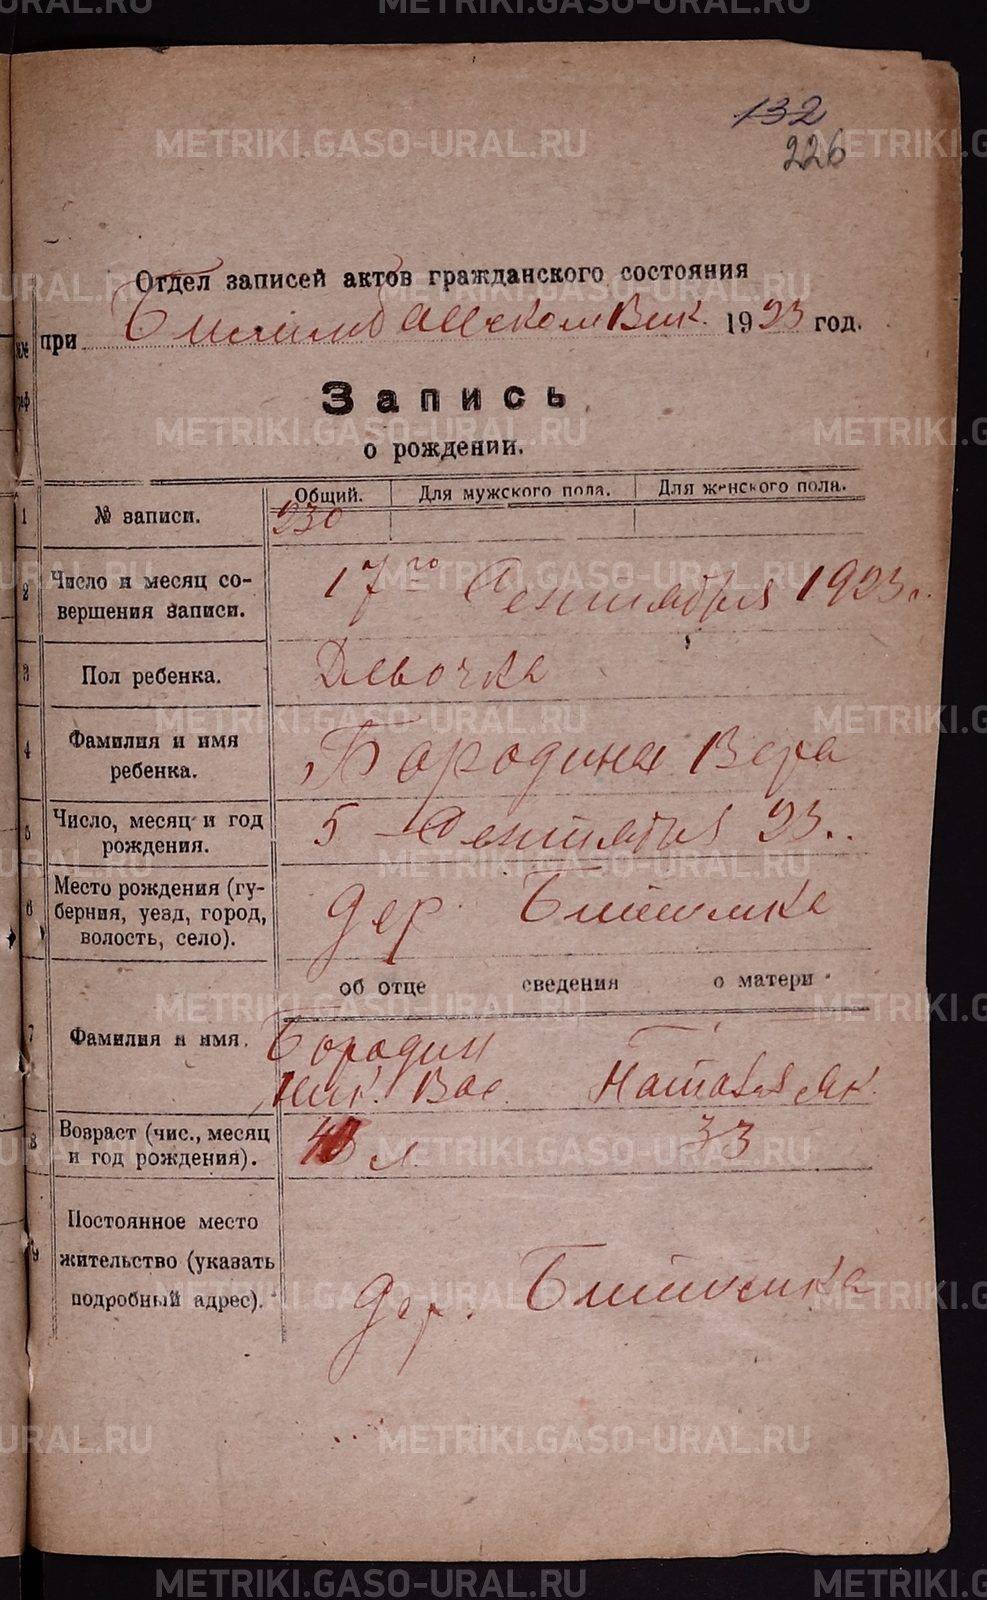 132
226
Отдел записей актов гражданского состояния
при Билимбаевском Вик. 1923 год.
Запись
о рождении.
Общий. Для мужского пола. Для женского пола.
1 № записи. 230
2 Число и месяц со-
вершения записи. 17го Сентября 1923 г.
3 Пол ребенка. Девочка
4 Фамилия и имя
ребенка. Бородина Вера
5 Число, месяц и год
рождения. 5 Сентября 23.
6 Место рождения (гу-
берния, уезд, город,
волость, село). дер. Битимка
об отце сведения о матери
7 Фамилия и имя. Бородин
Ник. Вас. Наталья Як.
8 Возраст (чис., месяц
и год рождения). л. 33
9 Постоянное место
жительство (указать
подробный адрес). дер. Битимка
METRIKI.GASO-URAL.RU